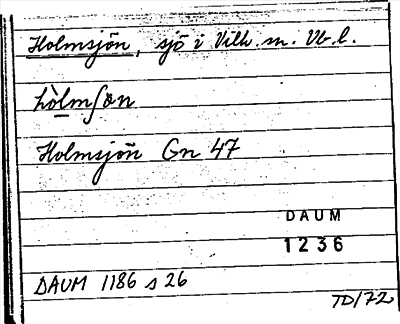 Holmsjön, sjö i Vilh. sn. Vb. l.
hòlmʃæn
Holmsjön Gn 47
DAUM
1236
DAUM 1186 s 26
TD/72